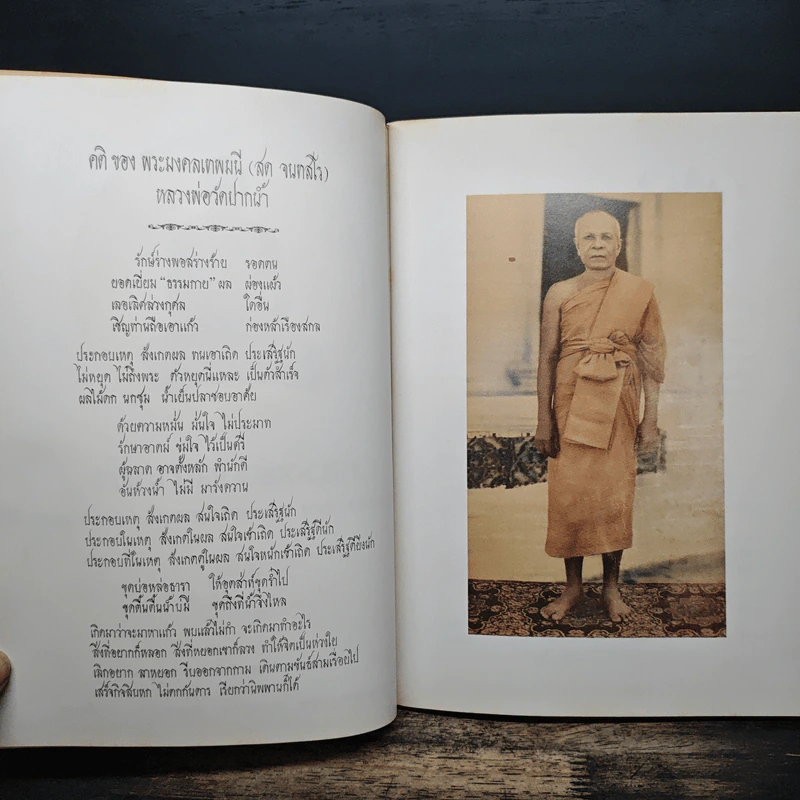 คติ ของ พระมงคลเทพมุนี (สด จนฺทสโร)
หลวงพ่อวัดปากน้ำ
รักษ์ร่างพอสร่างร้าย รอดตน
ยอดเยี่ยม "ธรรมกาย" ผล ผ่องแผ้ว
เลอเลิศล่วงกุศล ใดอื่น
เชิญท่านถือเอาแก้ว ก่องหล้าเรืองสกล
ประกอบเหตุ สังเกตผล ทนเอาเถิด ประเสริฐนัก
ไม่หยุด ไม่ถึงพระ ตัวหยุดนี่แหละ เป็นตัวสำเร็จ
ผลไม้ดก นกชุม น้ำเย็นปลาชอบอาศัย
ด้วยความหมั่น มั่นใจ ไม่ประมาท
รักษาอาตม์ ข่มใจ ไว้เป็นศรี
ผู้ฉลาด อาจตั้งหลัก พำนักดี
อันห้วงน้ำ ไม่มี มารังควาน
ประกอบเหตุ สังเกตผล สนใจเถิด ประเสริฐนัก
ประกอบในเหตุ สังเกตในผล สนใจเข้าเถิด ประเสริฐดีนัก
ประกอบที่ในเหตุ สังเกตดูในผล สนใจหนักเข้าเถิด ประเสริฐดียิ่งนัก
ขุดบ่อหล่อธารา ให้อุตส่าห์ขุดร่ำไป
ขุดตื้นตื้นน้ำบ่มี ขุดถึงที่น้ำจึงไหล
เกิดมาว่าจะมาหาแก้ว พบแล้วไม่กำ จะเกิดมาทำอะไร
สิ่งที่อยากก็หลอก สิ่งที่หยอกเขาก็ลวง ทำให้จิตเป็นห่วงใย
เลิกอยาก ลาหยอก รีบออกจากกาม เดินตามขันธ์สามเรื่อยไป
เสร็จกิจสิบหก ไม่ตกกันดาร เรียกว่านิพพานก็ได้